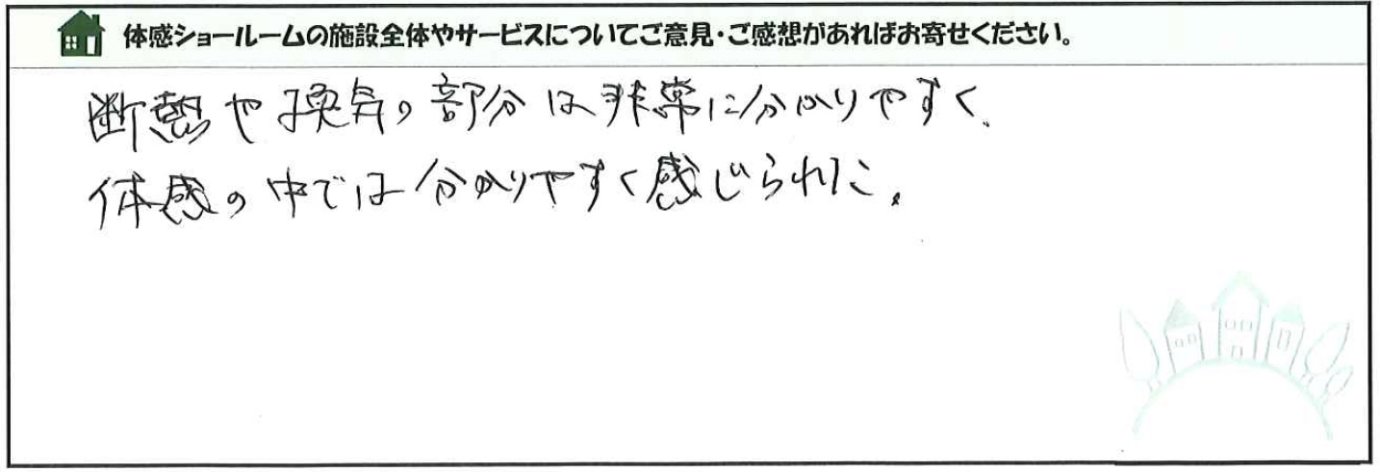 体感ショールームの施設全体やサービスについてご意見・ご感想があればお寄せください。
断熱や換気の部分は非常に分かりやすく、
体感の中では分かりやすく感じられた。